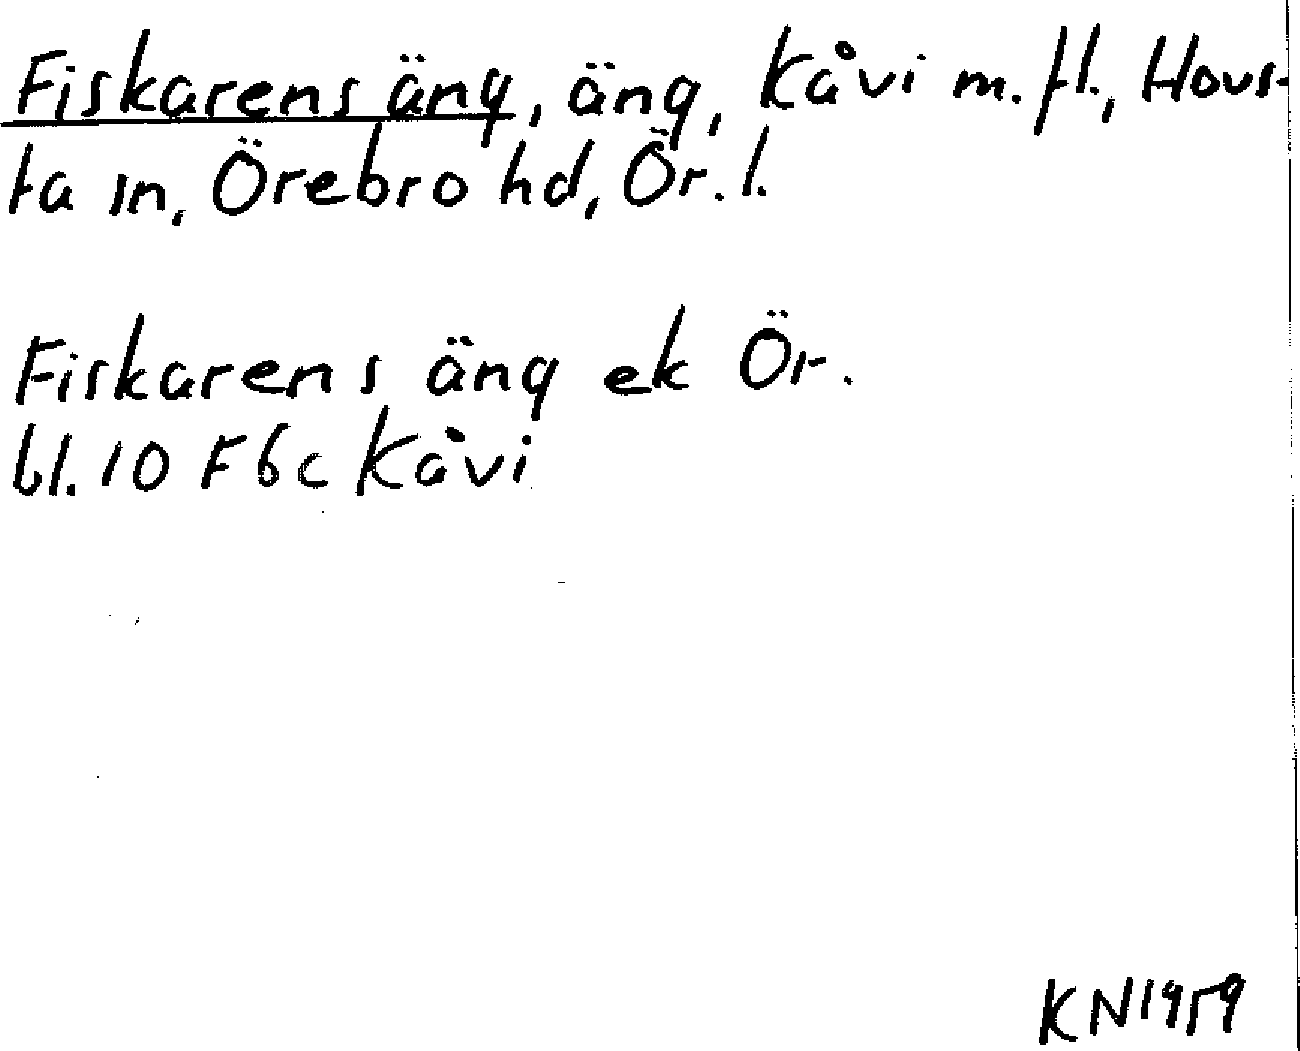 Fiskarens äng, äng, Kåvi m. fl., Hovs-
ta sn, Örebro hd, Ör. l.
Fiskarens äng ek Ör.
bl. 10 F6c Kåvi
KN1959